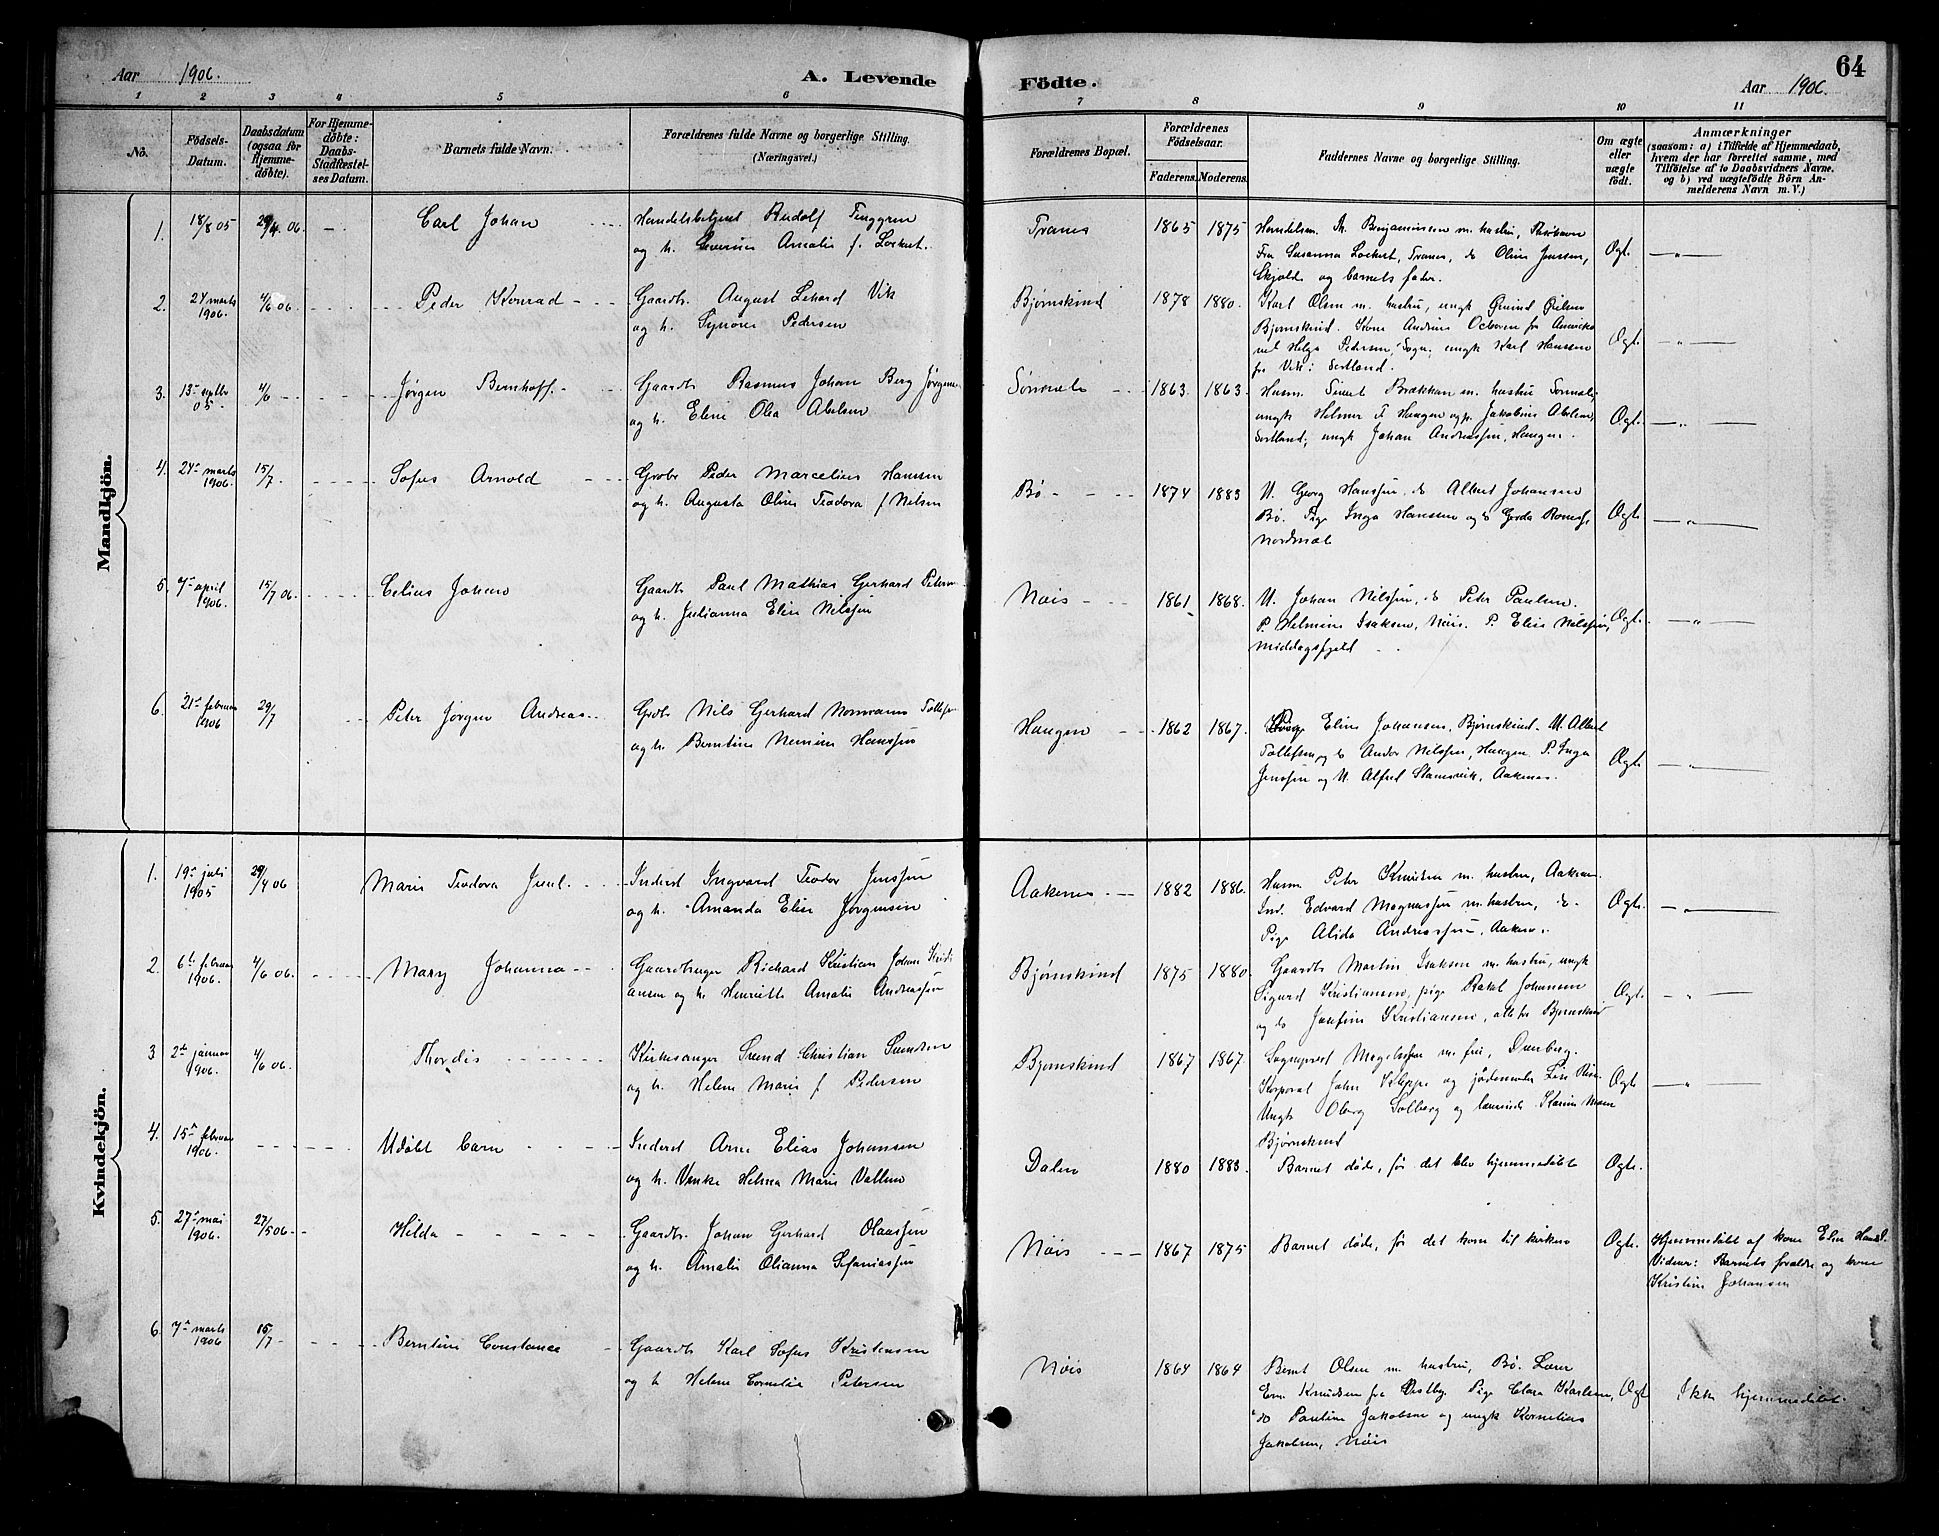 64
Aar 1906.
A. Levende
Födte.
Aar 1906.
1 2 3 4 5 6 7 8 9 10 11
Nò.
Födsels-
Datum.
Daabsdatum
(ogsaa for
Hjemme-
döbte).
For Hjemme-
döbte:
Daabs-
Stadfæstel-
ses Datum.
Barnets fulde Navn.
Forældrenes fulde Navne og borgerlige Stilling.
(Næringsvei.)
Forældrenes Bopæl.
Forældrenes
Födselsaar.
Faderens. Moderens.
Faddernes Navne og borgerlige Stilling.
Om ægte
eller
uægte
født.
Anmærkninger
(saasom: a) i Tilfælde af Hjemmedaab,
hvem der har forrettet samme, med
Tilföielse af to Daabsvidners Navne.
og b) ved uægtefödte Börn An-
melderens Navn m. V.)
Mandkjön.
1. 18/8 05 29/4 06. Carl Johan
Handelsbetjent Rudolf Tenggren
og h. Amalie f. Lockert.
Tranes 1865 1875
Handelsm. Th. Benjaminsen m. hustru,
Fru Susanna Lockert, Tranes, do Oline Jenssen,
Skjold og barnets fader.
Ægt.
2. 24 marts
1906. 4/6 06. Peder Konrad
Gaardb. August Vik
og h. Synøve Pedersen
Bjørnskind 1878 1880.
Karl Olsen m. hustru, ungk
Bjørnskind. Kone Andrine fra Amerika
Helga Pedersen, Sogn, ungk Karl Hanssen
fra Vik i Sortland.
Ægt.
3. 13de septbr
05. 4/6 Jørgen Bernhoff.
Gaardb Rasmus Johan Berg
og h. Eline Olea Abelsen
1863. 1863.
Husm. Brækkan m. hustru
ungk Helmer Haugen og p. Jakobine Abelsen,
Sortland, ungk Johan Andreassen, Haugen.
Ægt.
4. 24de marts
1906. 15/7. Sofus Arnold
Grdbr Peder Marcelius Hanssen
og h. Augusta Oline Teodora f Nilsen
Bø 1874 1883
U. Georg Hanssen, do Albert Johansen
Bø. Pige Inga Hanssen og do Gerda
Nordmæl
Ægt.
5. 7de april
1906. 15/7 06. Celius Johan
Gaardb Paul Mathias Gerhard
og h. Julianna Elise Nilssen
Nøis 1861 1868.
U. Johan Nilssen, do Peter Paulsen.
P. Helmine Isaksen, Nøis. P. Elise Nilssen,
Middagsfjeld
Ægt.
6. 21de februar
1906 29/7 Peter Jørgen Andreas
Grdb Nils Gerhard Normann
og h. Berntine Hanssen
Haugen 1862 1867.
Eline Johansen, Bjørnskind. U. Albert
Tollefsen, do Andor Nilssen, Haugen. P. Inga
Jenssen og U. Alfred Slamsvik, Aakenes.
Ægt.
Kvindekjön.
1. 19de juli
1905 29/4 06 Marie Teodora
Inderst Ingvard Teodor Jenssen
og h. Amanda Elise Jørgensen
Aakenes 1882 1886.
Husm Peter Knudsen m. hustru,
Ind. Edvard Magnussen m. hustru, do.
Pige Alida Andreassen, Aakenes.
Ægt.
2. 6te februar
1906. 4/6 06. Mary Johanna
Gaardbruger Richard Kristian Johan Kristi
ansen og h. Henriette Amalie Andreassen
Bjørnskind 1875 1880.
Gaardb Martin Isaksen m. hustru, ungk
Sigurd Kristiansen, pige Rakel Johansen
og do Josefine Kristiansen, alle fra Bjørnskind
Ægt.
3 2de januar
1906. 4/6 06. Thordis
Kirkesanger Svend Christian Svendsen
og h. Helene Marie f Pedersen
Bjørnskind 1867 1867.
Sogneprest Magelssen m. frue, Dverberg.
Korporal John Kleppe og jordemoder
Ungk Solberg og lærerinde
Bjørnskind
Ægt.
4. 15de februar
1906. Udøbt barn
Inderst Arne Elias Johansen
og h. Helma Marie
Dalen 1880 1883.
Barnet døde, før det blev hjemmedøbt
Ægt.
5. 27de mai
1906. 27/5 06. Hilda
Gaardb. Johan Gerhard Olaussen
og h. Amalie Olianna Sefaniassen
Nøis 1867 1875
Barnet døde, før det kom til kirken
Ægt.
Hjemmedøbt af kone Elen
Vidner: Barnets forældre og kone
Kristine Johansen
6. 7de marts
1906 15/7 Berntine Constance
Gaardb Karl Sofus Kristensen
og h Helene Cornelia Petersen
Nøis 1864 1864
Bernt Olsen m. hustru, Bø. Lærer
Knudsen fra Vestby. Pige Clara Karlsen,
do Pauline Jakobsen og ungk Kornelius
Jakobsen, Nøis
Ægt
Ikke hjemmedøbt.